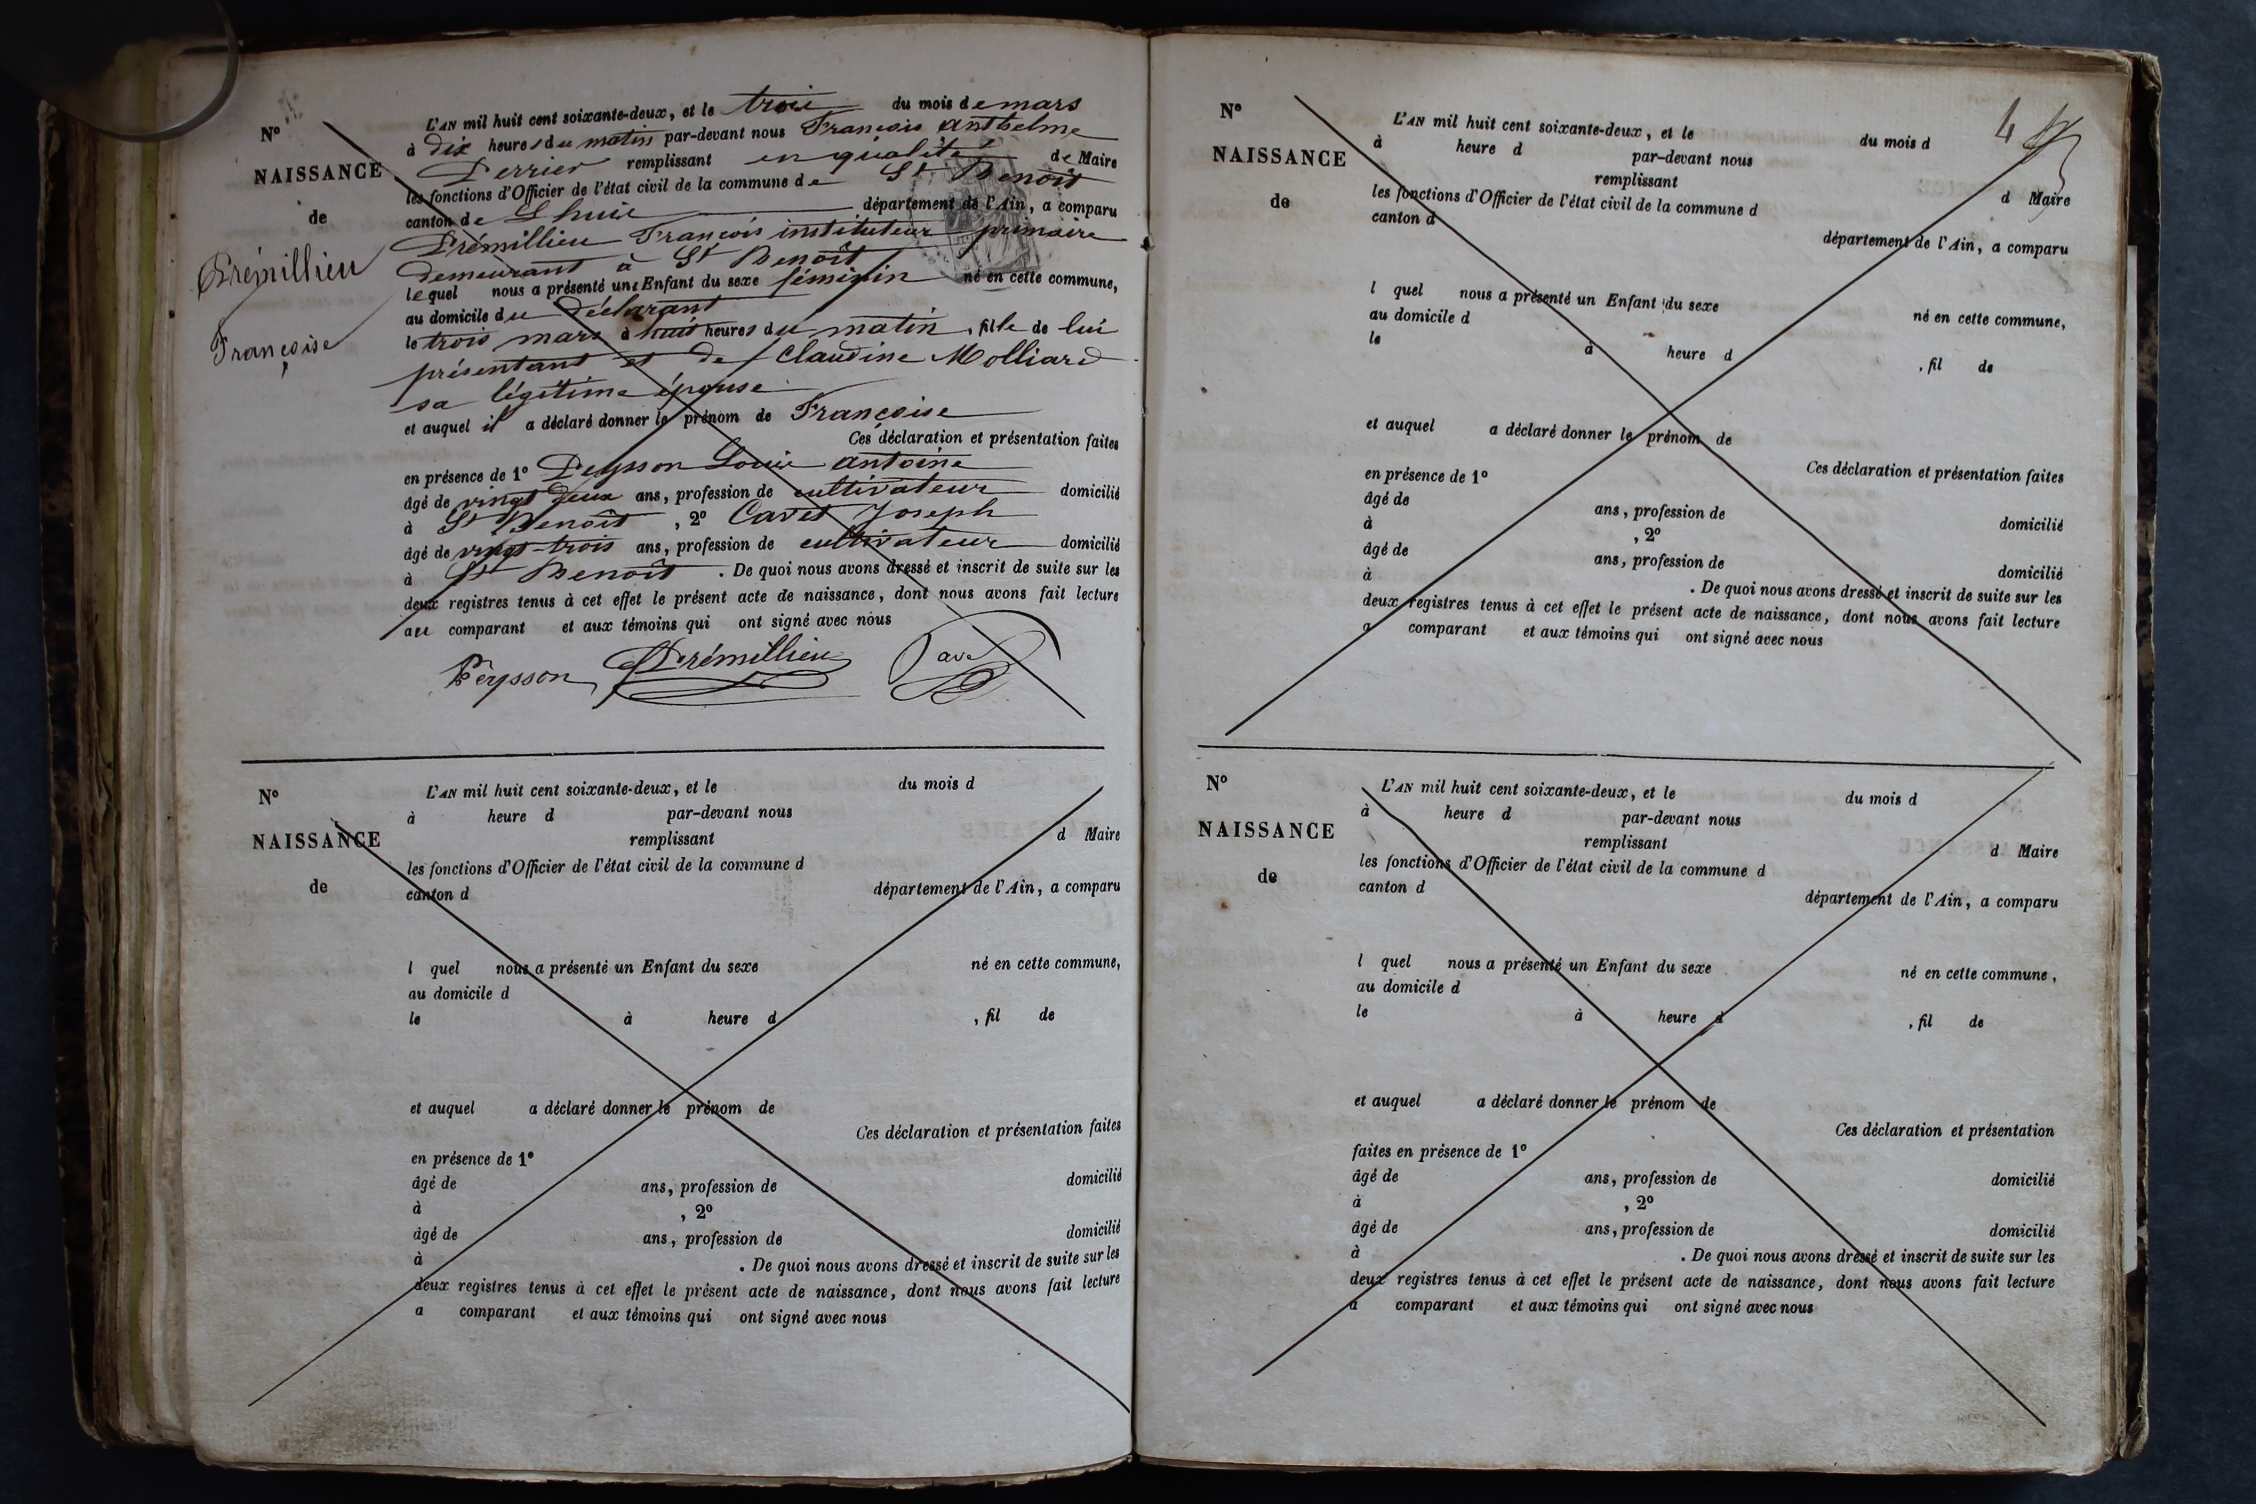 N°
NAISSANCE
de
Prémillieu
Françoise
L'AN mil huit cent soixante-deux, et le trois du mois de mars
à dix heures du matin par-devant nous François anthelme
Perrier remplissant en qualité de Maire
les fonctions d'Officier de l'état civil de la commune de St Benoît
canton de Lhuis département de l'Ain, a comparu
Prémillieu François instituteur primaire
demeurant à St Benoît
lequel nous a présenté une Enfant du sexe féminin né en cette commune,
au domicile du déclarant
le trois mars à huit heures du matin, fille de lui
présentant et de Claudine Molliard
sa légitime épouse
et auquel il a déclaré donner le prénom de Françoise
Ces déclaration et présentation faites
en présence de 1° Peysson Louis antoine
âgé de vingt deux ans, profession de cultivateur domicilié
à St Benoît, 2° Cavet Joseph
âgé de vingt-trois ans, profession de cultivateur domicilié
à St Benoît. De quoi nous avons dressé et inscrit de suite sur les
deux registres tenus à cet effet le présent acte de naissance, dont nous avons fait lecture
au comparant et aux témoins qui ont signé avec nous
Peysson Prémillieu Cavet
N°
NAISSANCE
de
L'AN mil huit cent soixante-deux, et le du mois d
à heure d par-devant nous
remplissant d Maire
les fonctions d'Officier de l'état civil de la commune d
canton d département de l'Ain, a comparu
l quel nous a présenté un Enfant du sexe né en cette commune,
au domicile d
le à heure d , fil de
et auquel a déclaré donner le prénom de
Ces déclaration et présentation faites
en présence de 1°
âgé de ans, profession de domicilié
à , 2°
âgé de ans, profession de domicilié
à . De quoi nous avons dressé et inscrit de suite sur les
deux registres tenus à cet effet le présent acte de naissance, dont nous avons fait lecture
a comparant et aux témoins qui ont signé avec nous
4
N°
NAISSANCE
de
L'AN mil huit cent soixante-deux, et le du mois d
à heure d par-devant nous
remplissant d Maire
les fonctions d'Officier de l'état civil de la commune d
canton d département de l'Ain, a comparu
l quel nous a présenté un Enfant du sexe né en cette commune,
au domicile d
le à heure d , fil de
et auquel a déclaré donner le prénom de
Ces déclaration et présentation faites
en présence de 1°
âgé de ans, profession de domicilié
à , 2°
âgé de ans, profession de domicilié
à . De quoi nous avons dressé et inscrit de suite sur les
deux registres tenus à cet effet le présent acte de naissance, dont nous avons fait lecture
a comparant et aux témoins qui ont signé avec nous
N°
NAISSANCE
de
L'AN mil huit cent soixante-deux, et le du mois d
à heure d par-devant nous
remplissant d Maire
les fonctions d'Officier de l'état civil de la commune d
canton d département de l'Ain, a comparu
l quel nous a présenté un Enfant du sexe né en cette commune,
au domicile d
le à heure d , fil de
et auquel a déclaré donner le prénom de
Ces déclaration et présentation
faites en présence de 1°
âgé de ans, profession de domicilié
à , 2°
âgé de ans, profession de domicilié
à . De quoi nous avons dressé et inscrit de suite sur les
deux registres tenus à cet effet le présent acte de naissance, dont nous avons fait lecture
a comparant et aux témoins qui ont signé avec nous